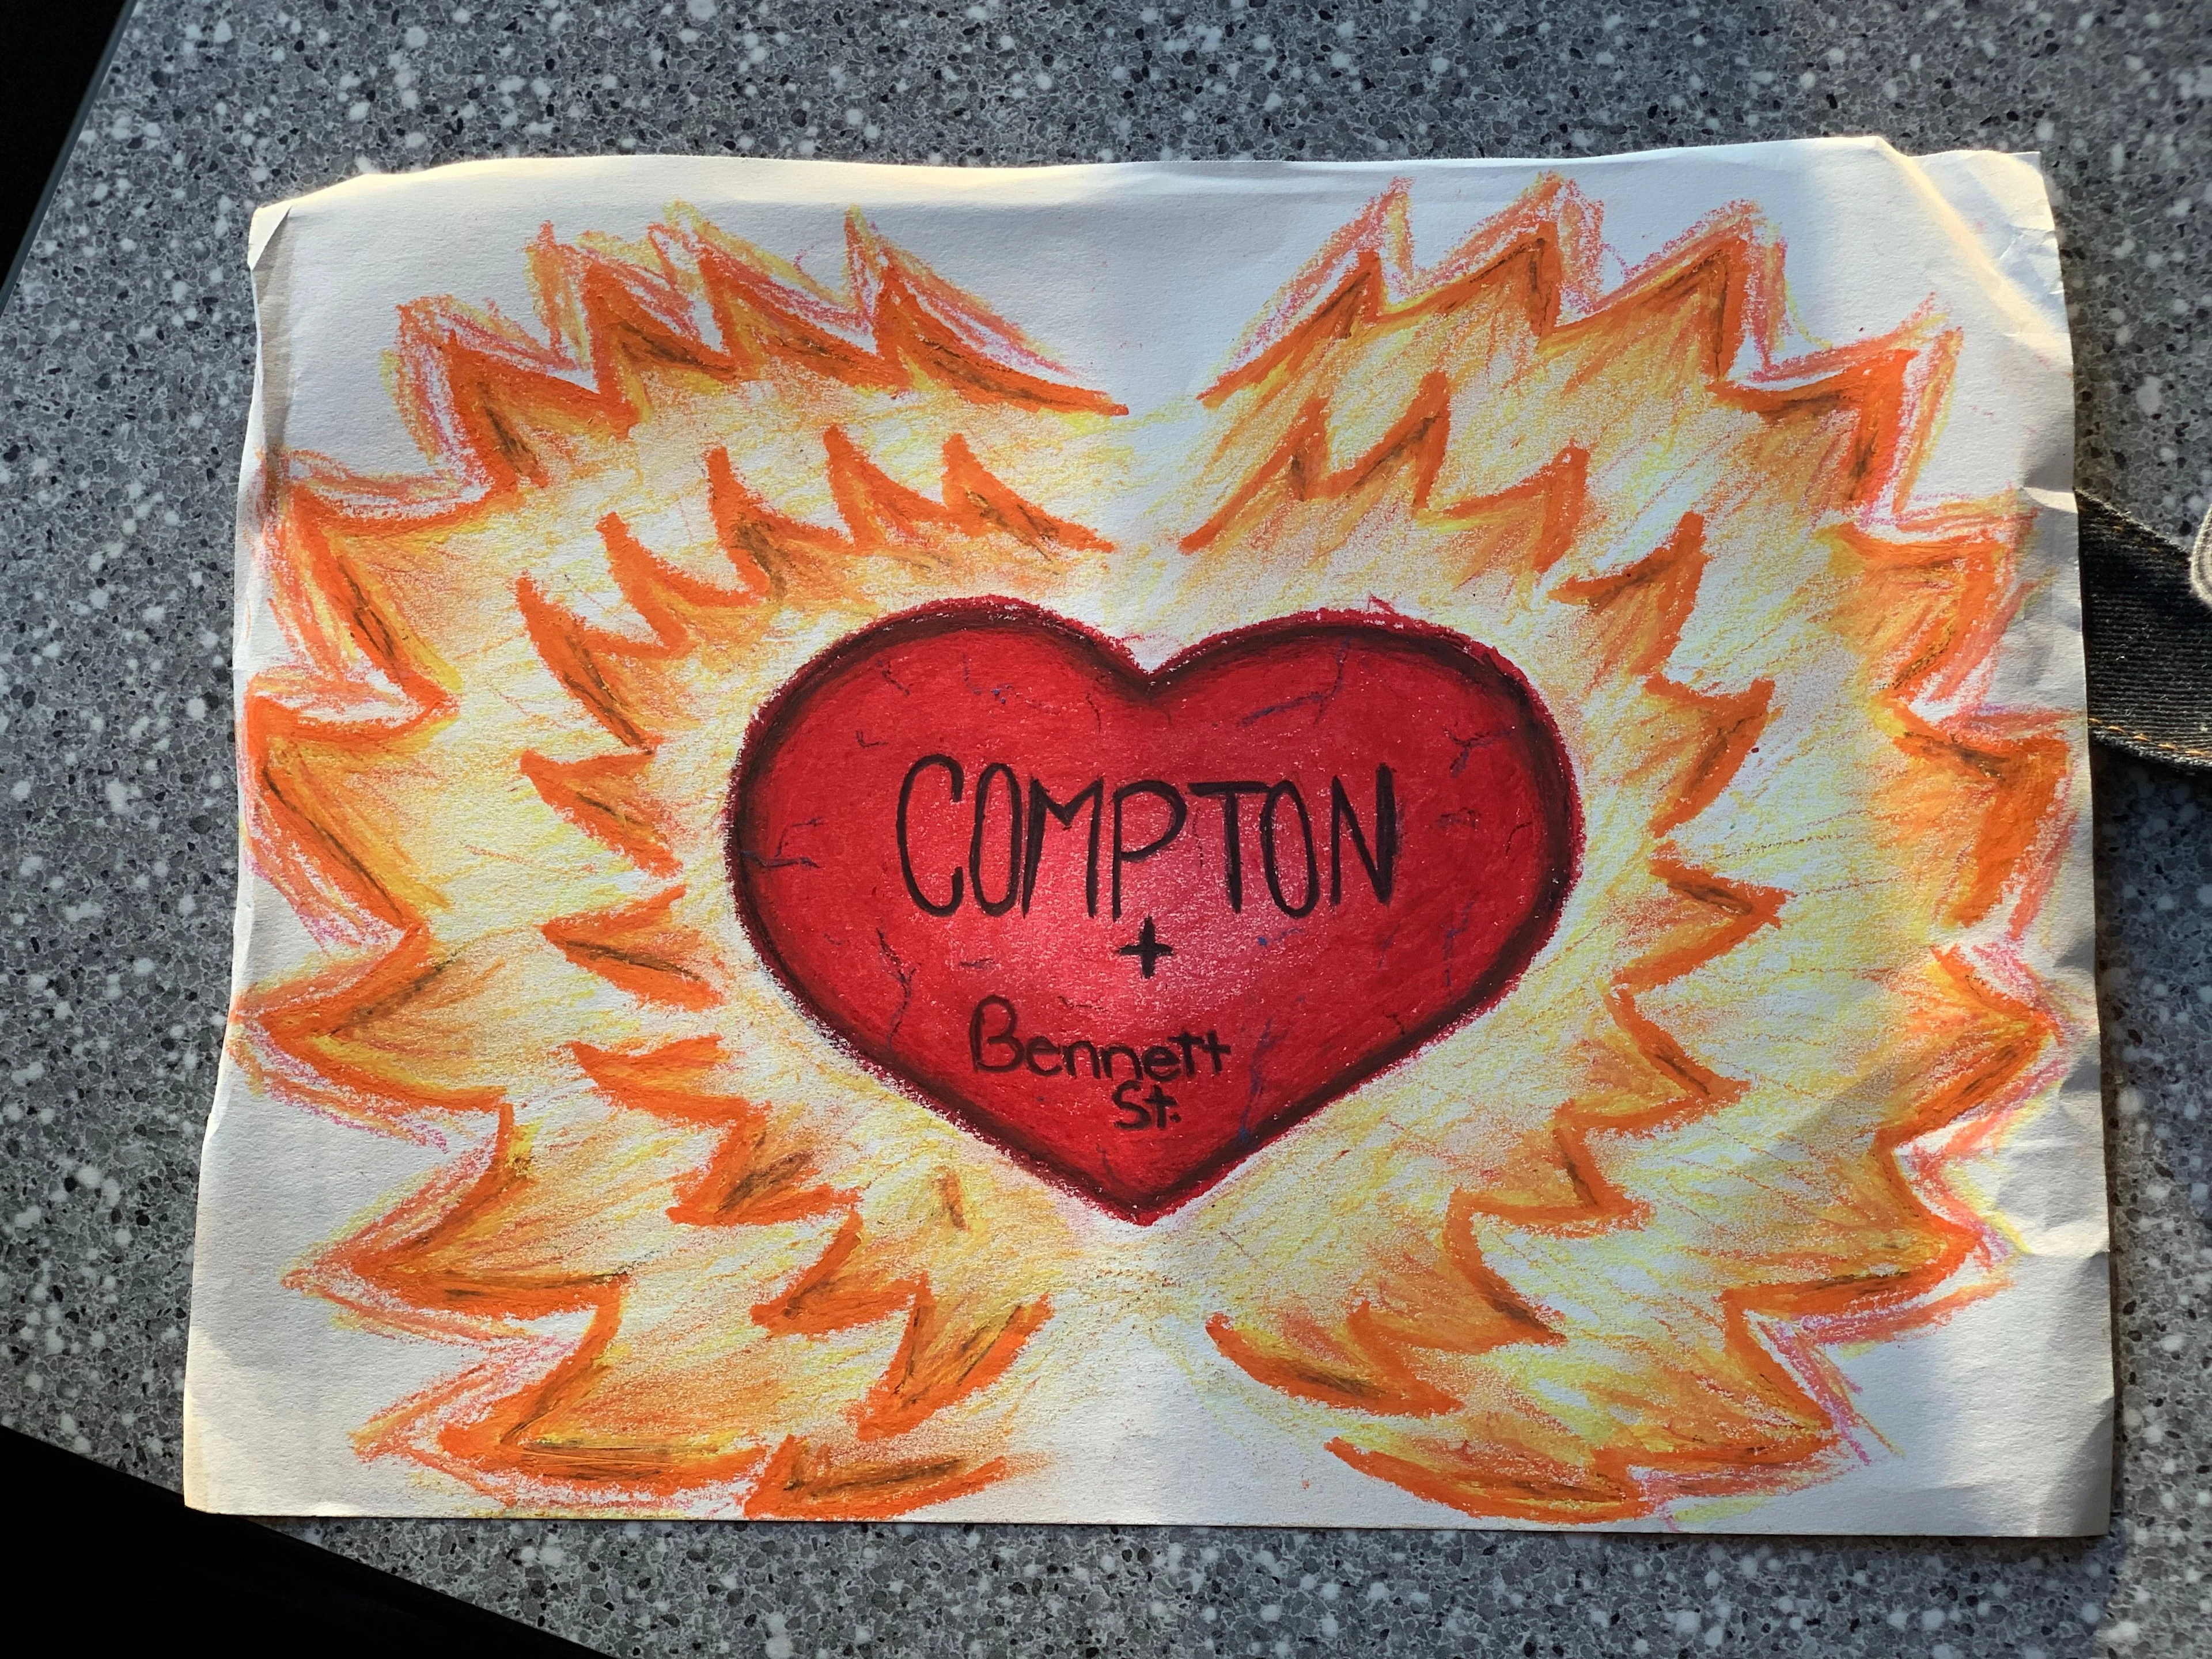 COMPTON
+
Bennett
St.